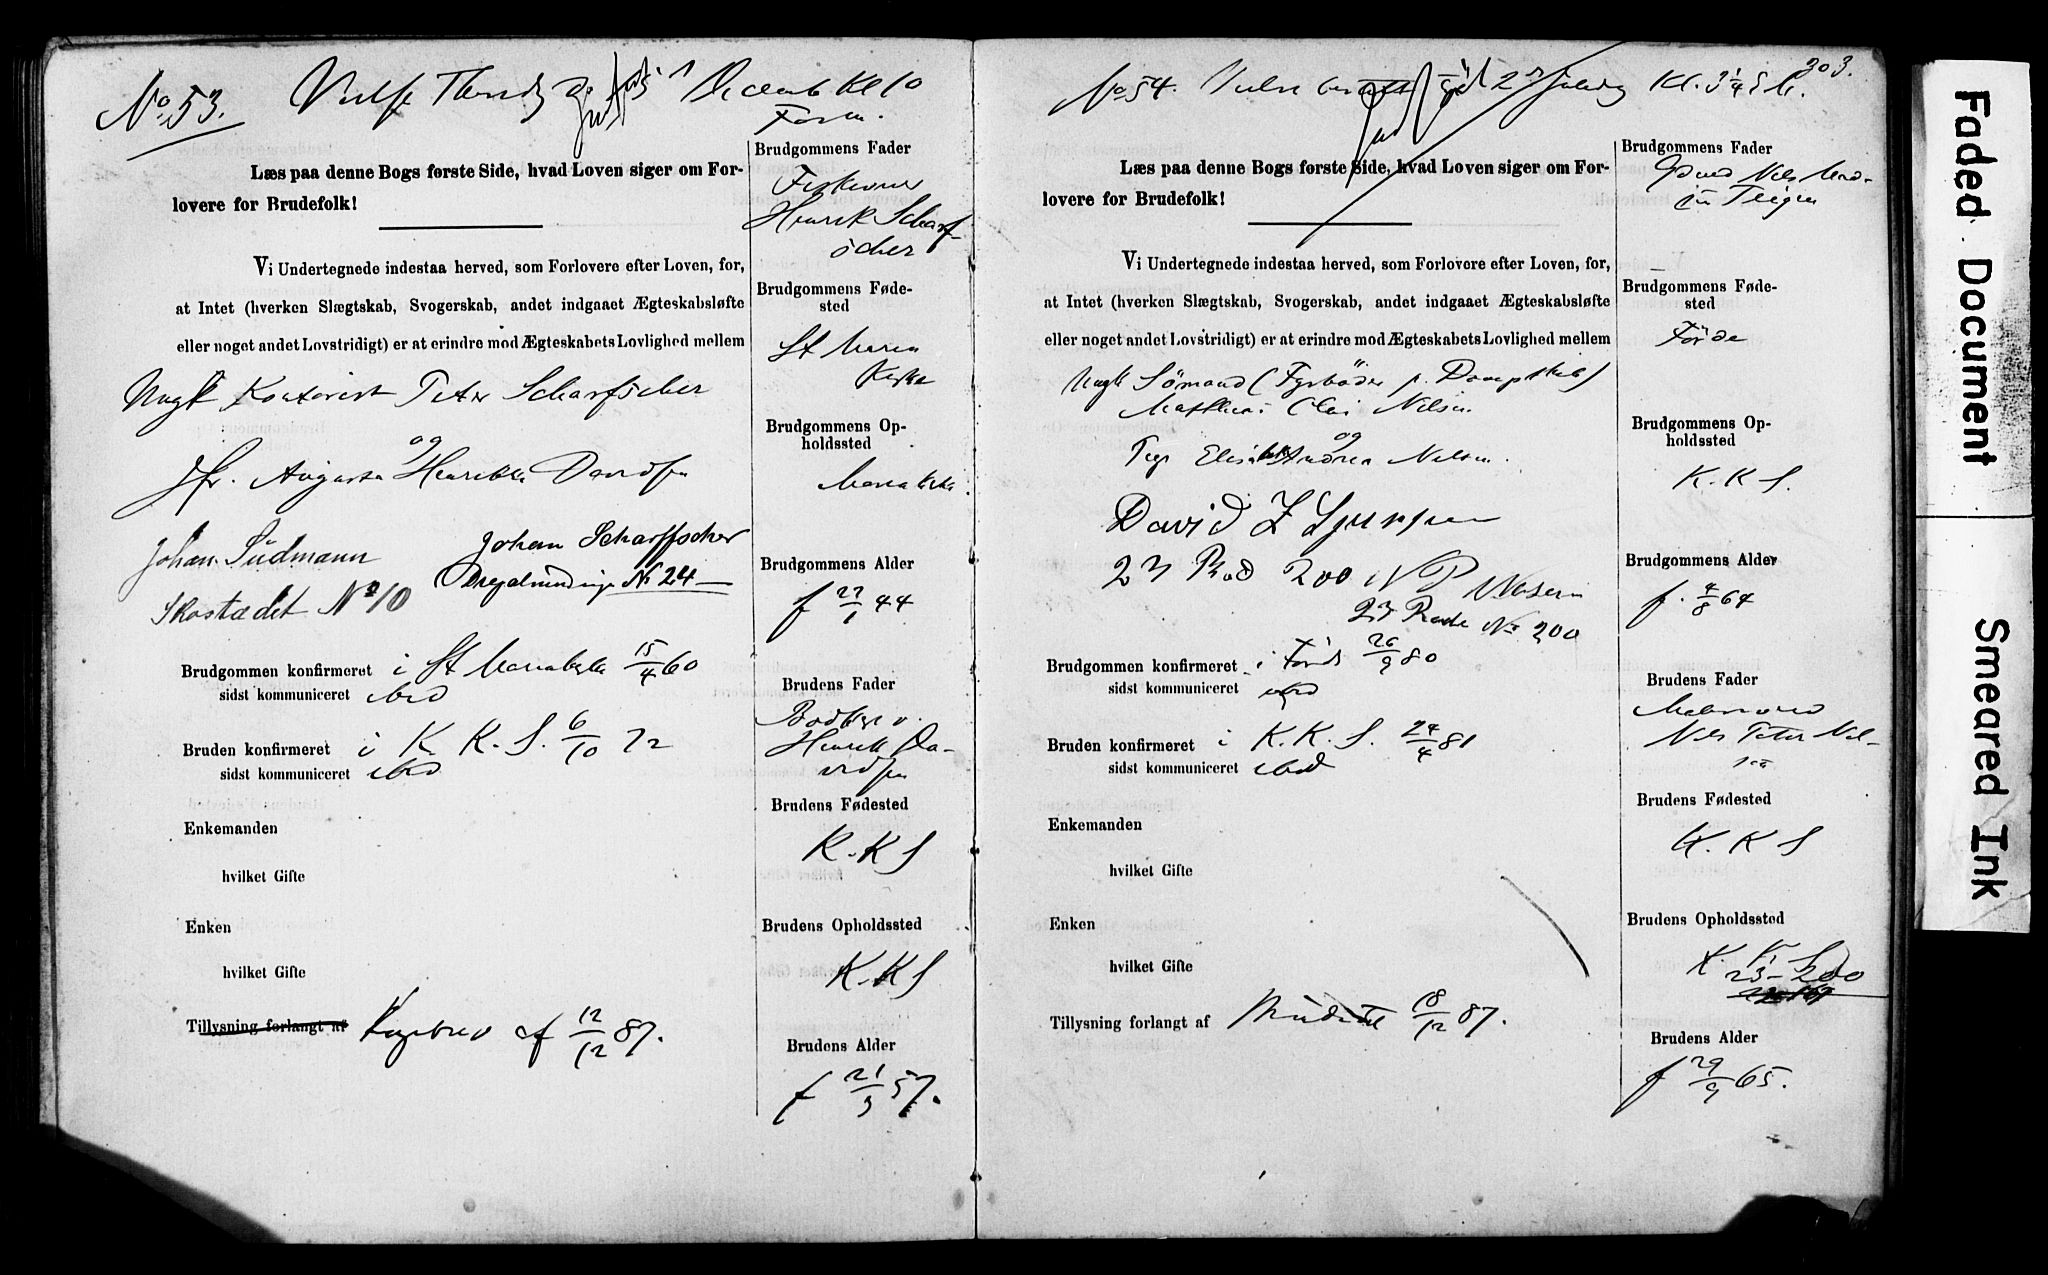 No 53.
Decemb Kl 10
Form.
Læs paa denne Bogs første Side, hvad Loven siger om For-
lovere for Brudefolk!
Vi Undertegnede indestaa herved, som Forlovere efter Loven, for,
at Intet (hverken Slægtskab, Svogerskab, andet indgaaet Ægteskabsløfte
eller noget andet Lovstridigt) er at erindre mod Ægteskabets Lovlighed mellem
Ungk Kontorist Peter Scharfscher
og
Jfr. Augusta Henrikke Davidsen
Johan Südmann
Skostædet No 10
Johan Scharffscher
No 24
Brudgommen konfirmeret i St Mariakirke 15/4 60
sidst kommuniceret ibid
Bruden konfirmeret i K. K. S. 6/10 72
sidst kommuniceret ibid
Enkemanden
hvilket Gifte
Enken
hvilket Gifte
Tillysning forlangt af Kgebrev af 12/12 87.
Brudgommens Fader
Henrik Scharf-
scher
Brudgommens Føde-
sted
St Maria
Kirke
Brudgommens Op-
holdssted
Mariakirke.
Brudgommens Alder
f 27/1 44
Brudens Fader
Bødker
Henrik Da-
vidsen
Brudens Fødested
K. K S
Brudens Opholdssted
K. K S
Brudens Alder
f 21/3 57.
303.
No 54.
Kl. 3 1/4
Læs paa denne Bogs første Side, hvad Loven siger om For-
lovere for Brudefolk!
Vi Undertegnede indestaa herved, som Forlovere efter Loven, for,
at Intet (hverken Slægtskab, Svogerskab, andet indgaaet Ægteskabsløfte
eller noget andet Lovstridigt) er at erindre mod Ægteskabets Lovlighed mellem
Ungk Sömand (Fyrböder p. Dampskib)
Matthias Olai Nilsen
og
Pige Elisabet Andrea Nilsen.
David
23 Rod 200 N P Nilsen
23 Rode No 200
Brudgommen konfirmeret i Förde 26/9 80
sidst kommuniceret ibid
Bruden konfirmeret i K. K. S. 24/4 81
sidst kommuniceret ibid
Enkemanden
hvilket Gifte
Enken
hvilket Gifte
Tillysning forlangt af 18/12 87.
Brudgommens Fader
Nils
Brudgommens Føde-
sted
Förde
Brudgommens Op-
holdssted
K. K S.
Brudgommens Alder
f. 4/8 64
Brudens Fader
Nils Peter Nil-
sen
Brudens Fødested
K. K S
Brudens Opholdssted
K. K. S
23-200
Brudens Alder
f 29/9 65.
Faded Document
Smeared Ink